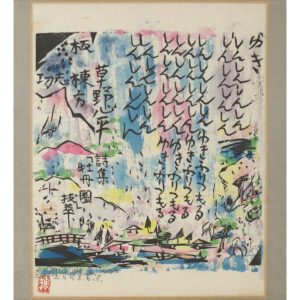 ゆき
しんしんしんしん
しんしんしんしん
しんしんしんしんゆきふりつもる
しんしんしんしんゆきふりつもる
しんしんしんしんゆきふりつもる
しんしんしんしん
しんしんしんしん
詩集
「牡丹園」
抜萃
草野心平
板 棟方
志功